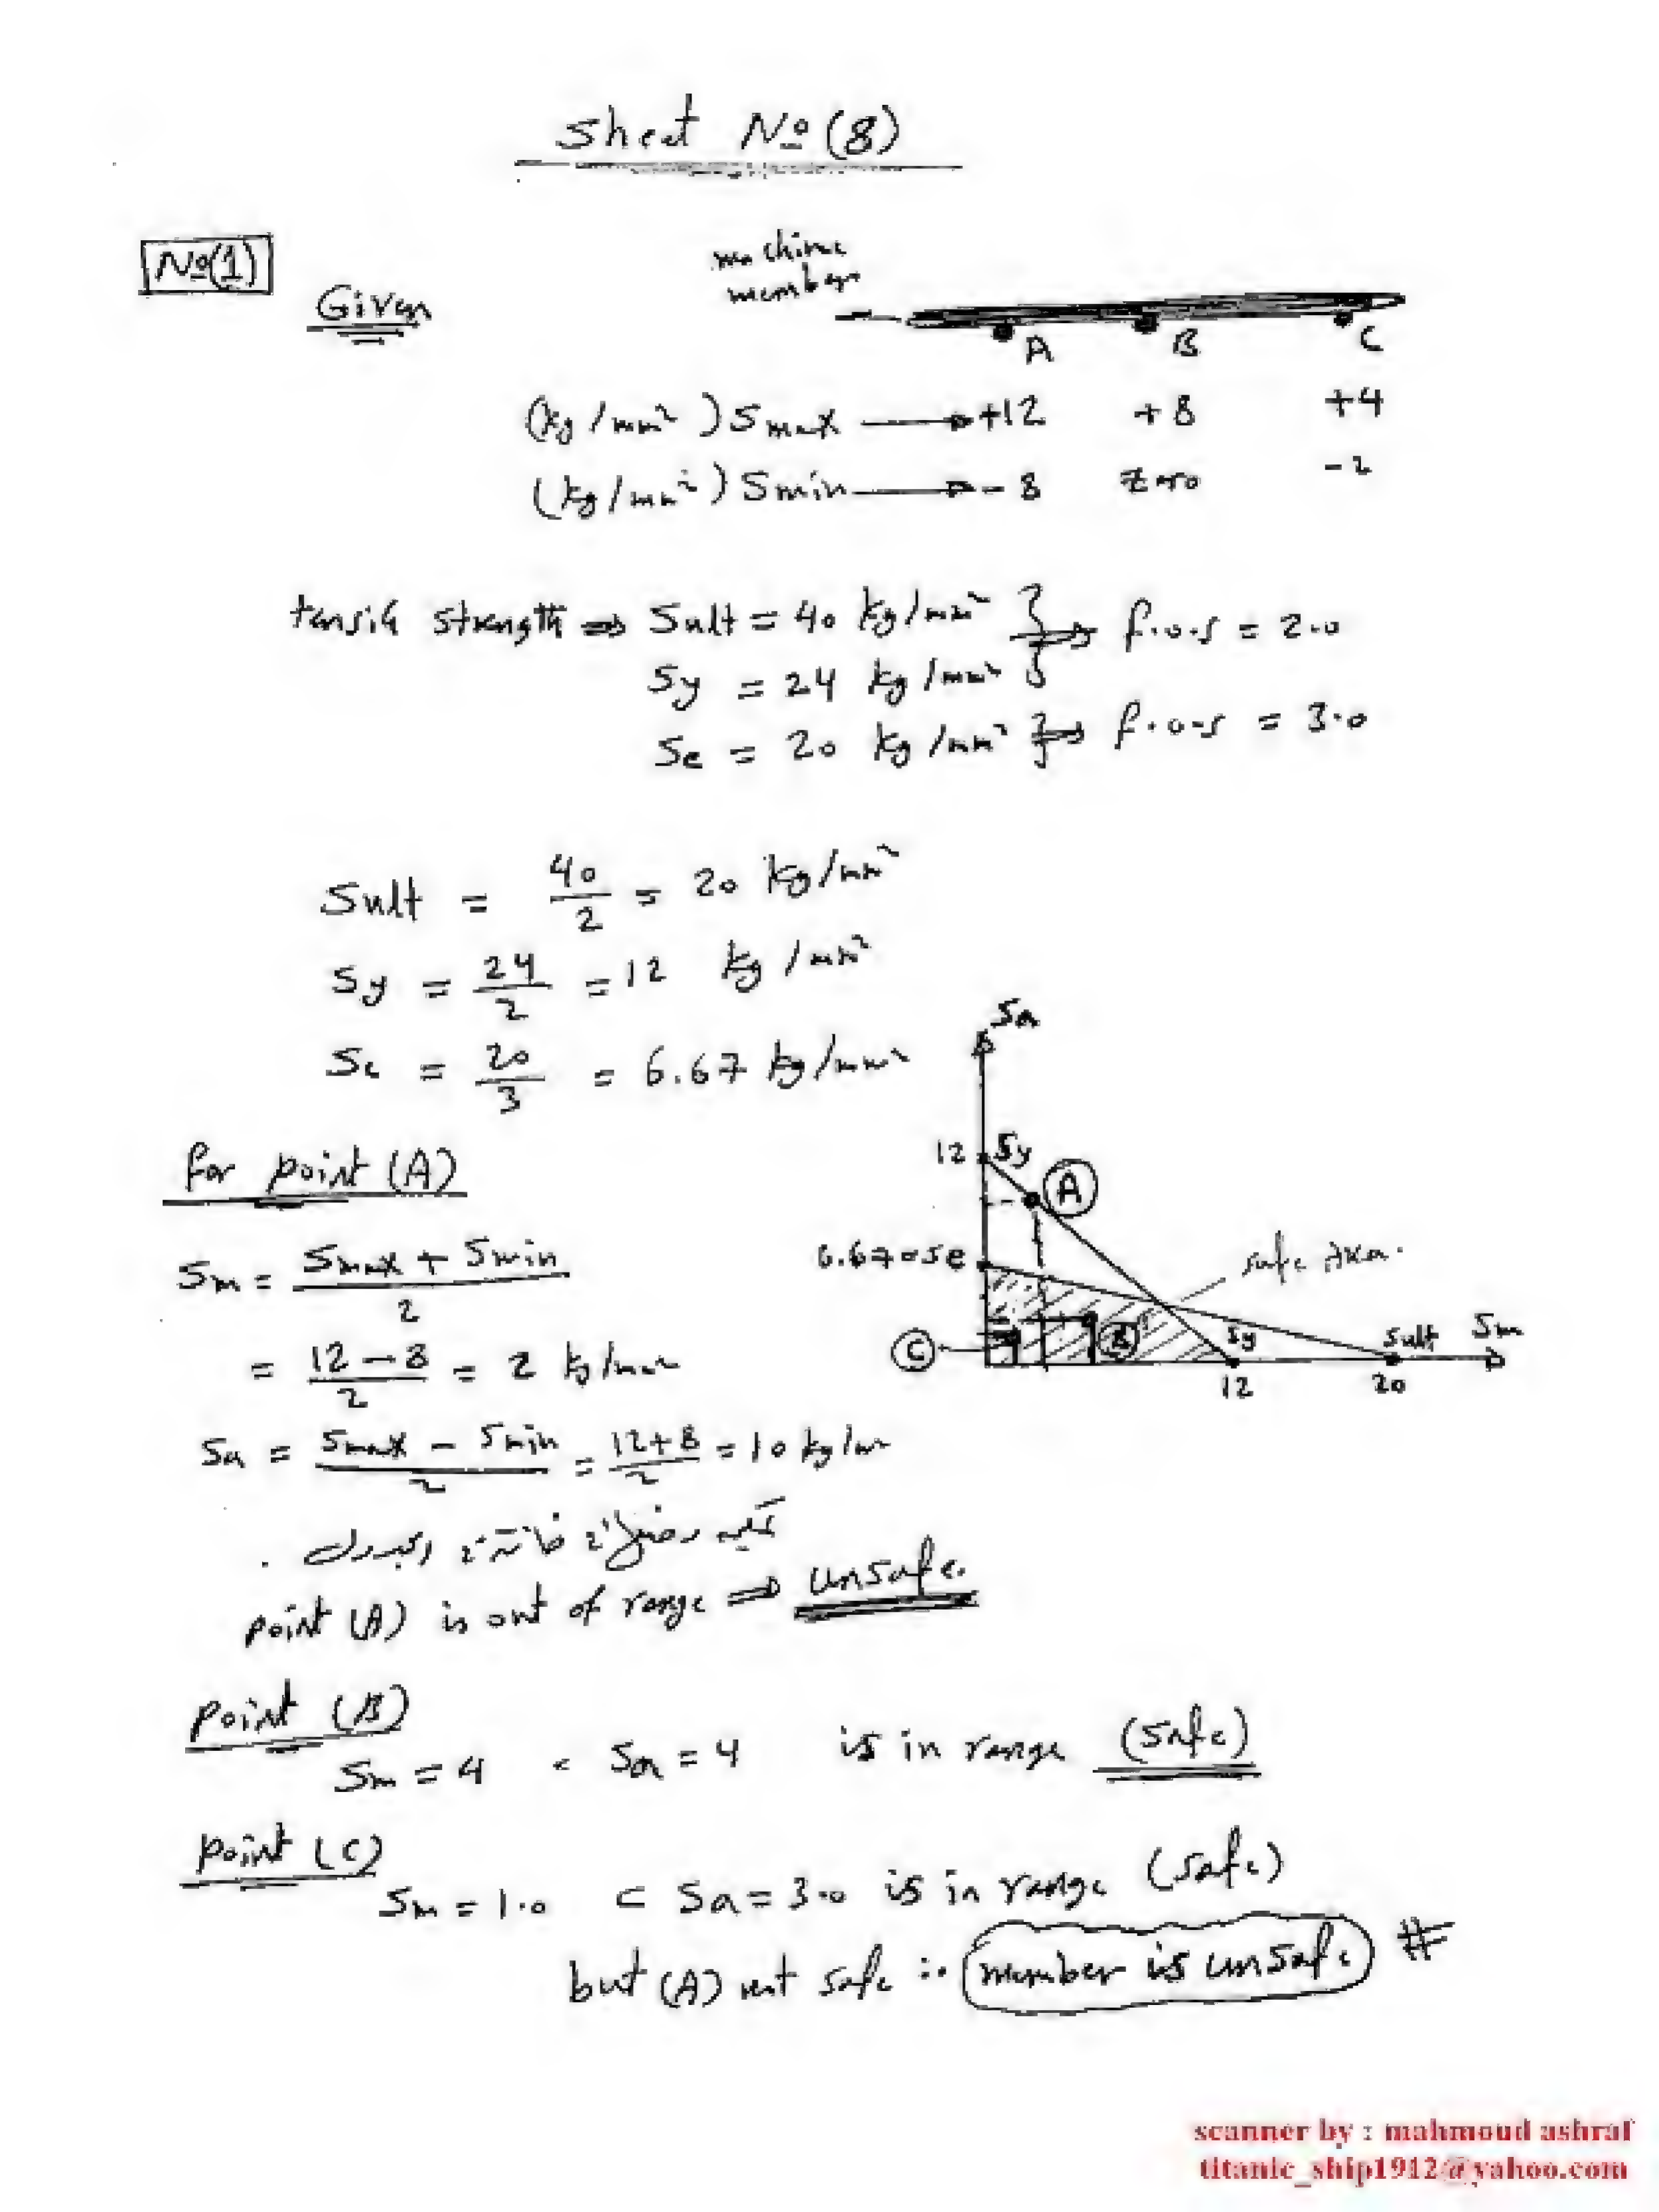 Sheet No (8)
No(1)
Given
machine
member
A B C
(kg/mm²) Smax → +12 +8 +4
(kg/mm²) Smin → -8 zero -2
tensile strength ⇒ Sult = 40 kg/mm² } ⇒ f.o.s = 2.0
Sy = 24 kg/mm²
Se = 20 kg/mm² } ⇒ f.o.s = 3.0
Sult = 40/2 = 20 kg/mm²
Sy = 24/2 = 12 kg/mm²
Se = 20/3 = 6.67 kg/mm²
Sa
12 Sy
A
6.67 = Se
safe area.
C
B
Sy
Sult
Sm
12
20
for point (A)
Sm = (Smax + Smin)/2
= (12 - 8)/2 = 2 kg/mm²
Sa = (Smax - Smin)/2 = (12+8)/2 = 10 kg/m²
point (A) is out of range ⇒ unsafe.
point (B)
Sm = 4 c Sa = 4 is in range (safe)
point (C)
Sm = 1.0 c Sa = 3.0 is in range (safe)
but (A) not safe ∴ member is unsafe #
scanner by : mahmoud ashraf
titanic_ship1912@yahoo.com